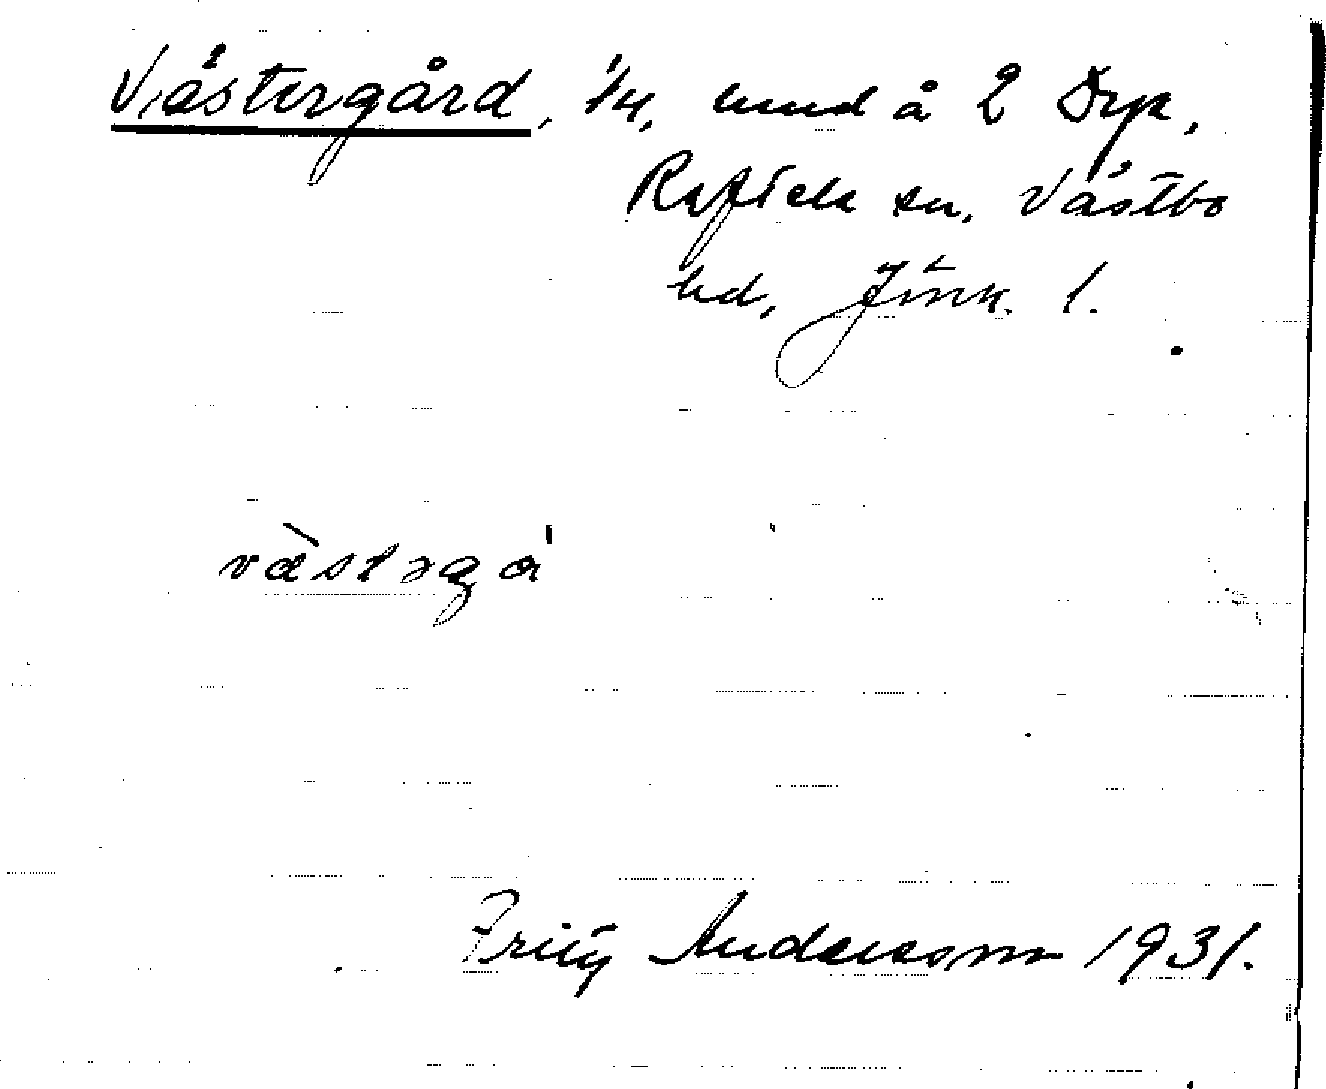 Västergård, 1/4, å 2
Reftele sn. Västbo
hd, Jönk. l.
væ̀stəgɑ'
Fritz Andersson 1931.